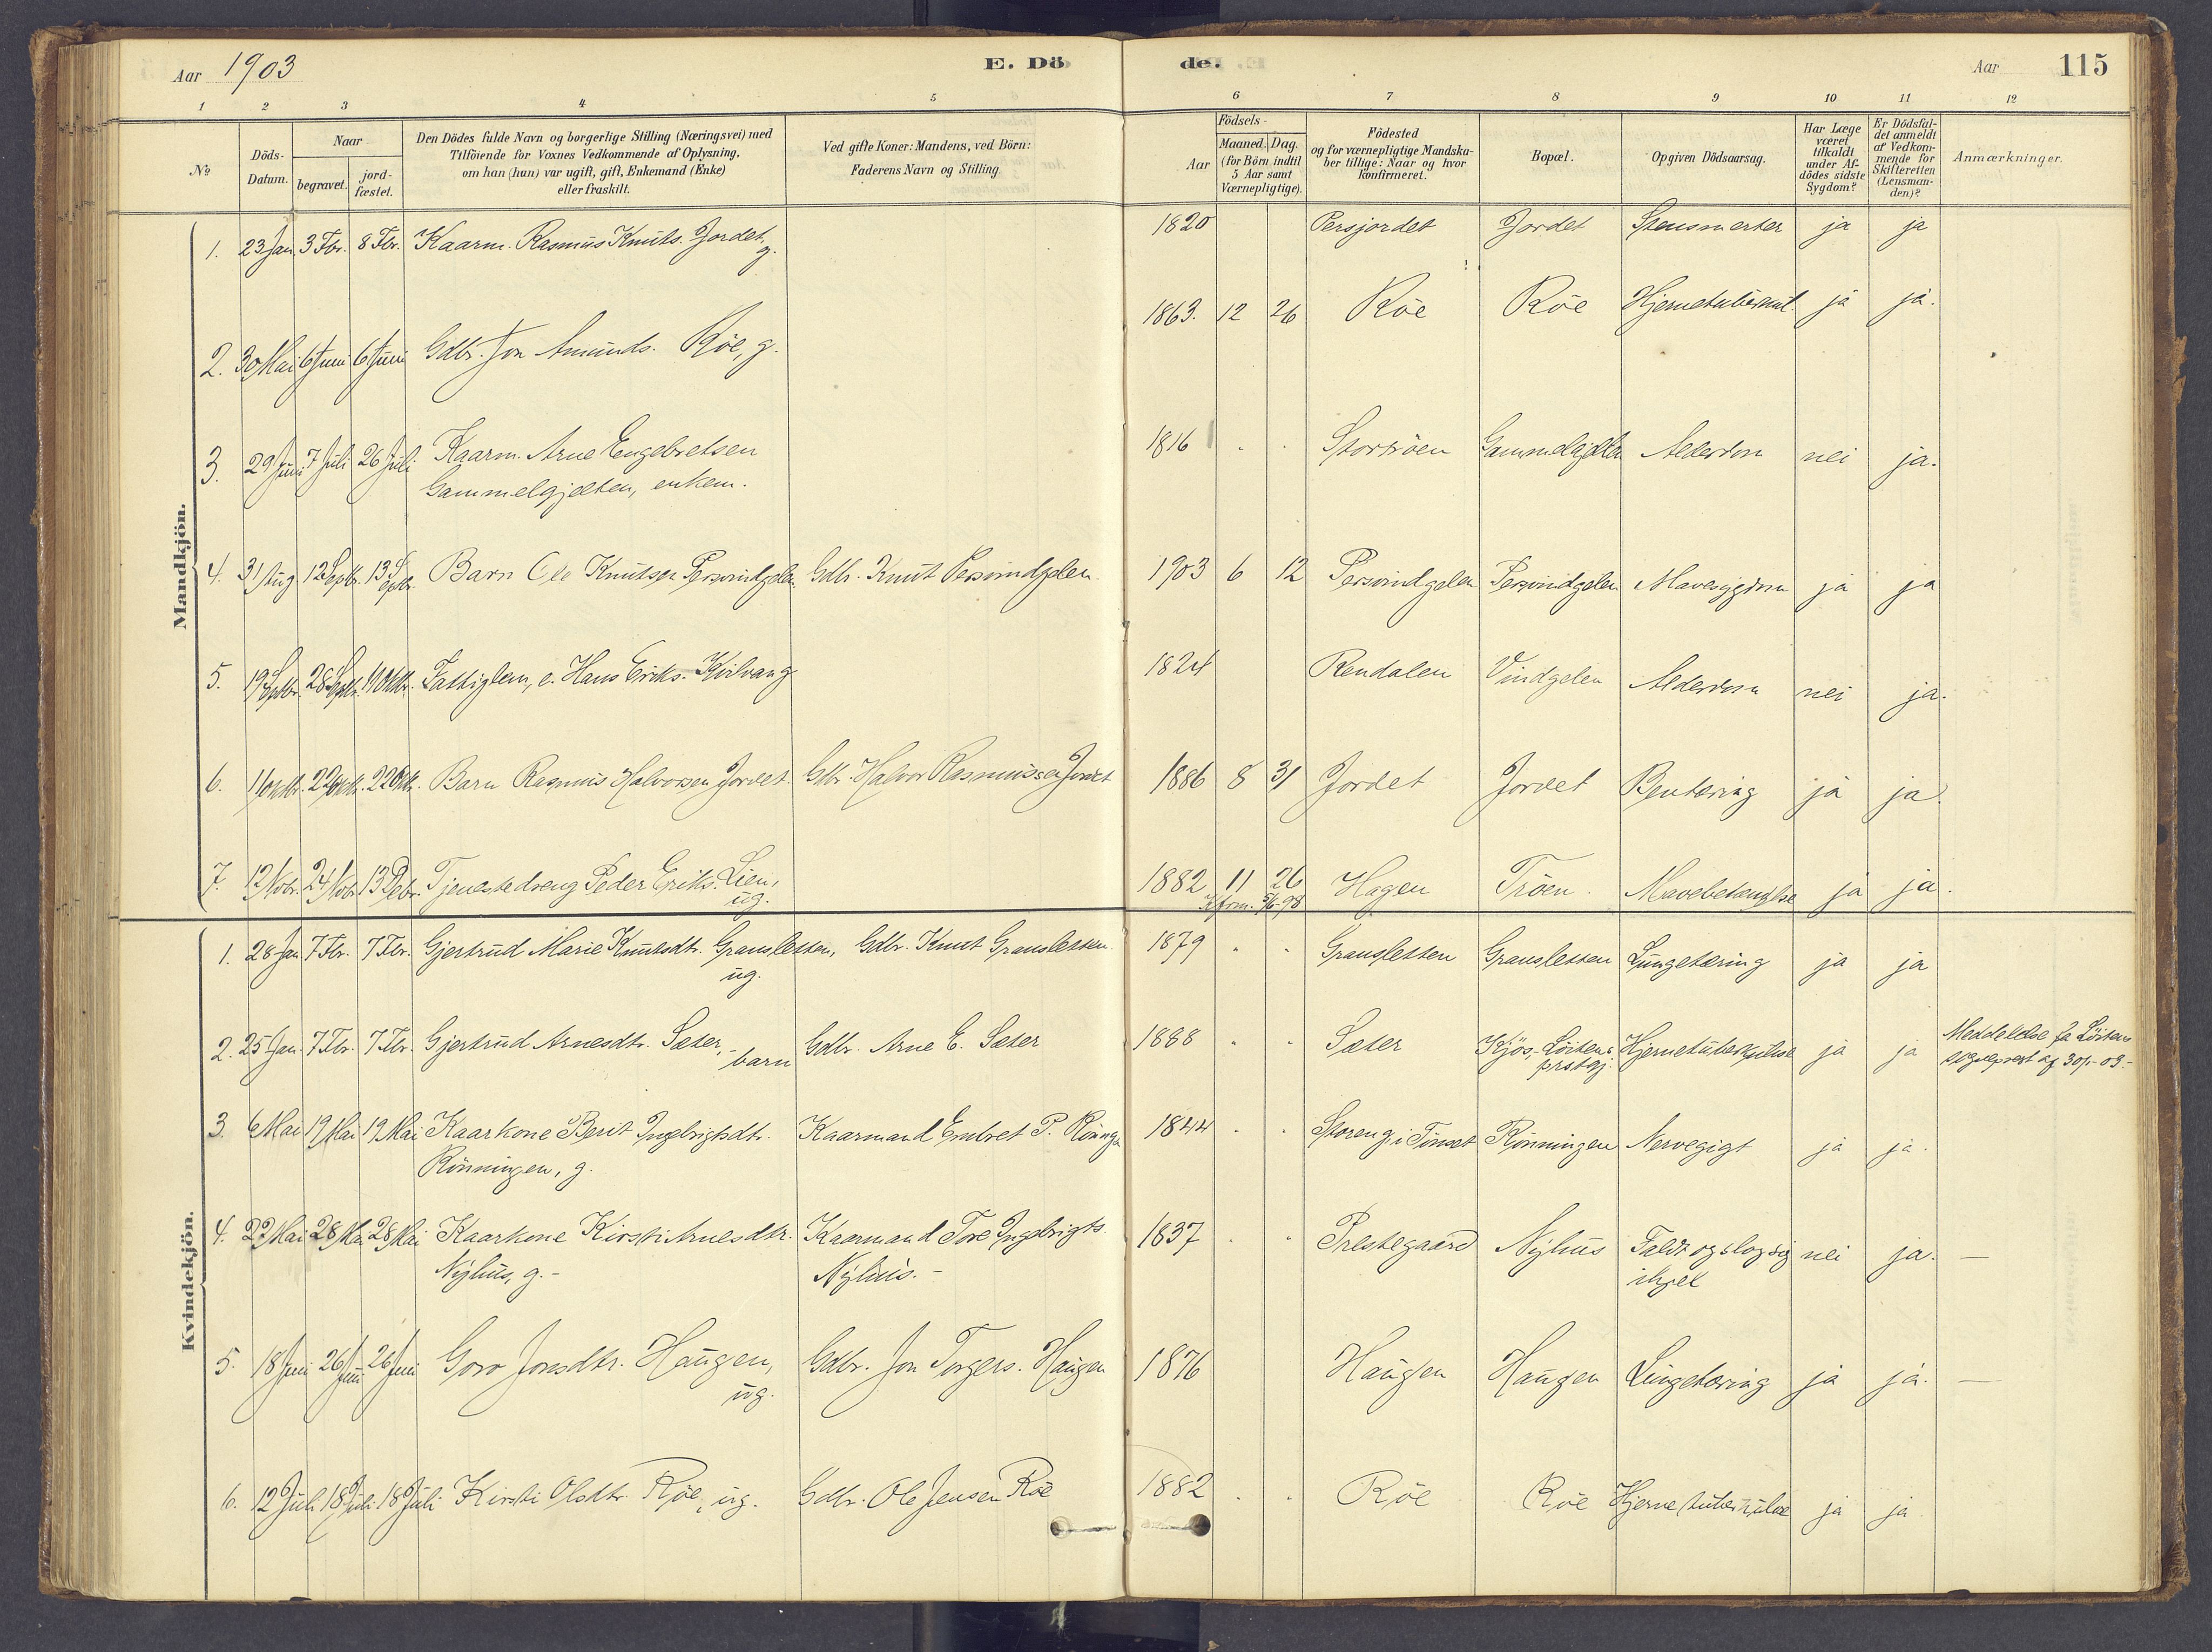 Aar 1903 E. Dö de. Aar 115
1 2 3 4 5 6 7 8 9 10 11 12
No Döds-Datum. Naar begravet. jord-fæstet. Den Dödes fulde Navn og borgerlige Stilling (Næringsvei) med Tilföiende for Voxnes Vedkommende af Oplysning, om han (hun) var ugift, gift, Enkemand (Enke) eller fraskilt. Ved gifte Koner: Mandens, ved Börn: Faderens Navn og Stilling. Födsels- Aar Maaned. Dag. (for Börn indtil 5 Aar samt Værnepligtige). Födested og for værnepligtige Mandskaber tillige: Naar og hvor konfirmeret. Bopæl. Opgiven Dödsaarsag. Har Læge været tilkaldt under Afdödes sidste Sygdom? Er Dödsfaldet anmeldt af Vedkommende for Skifteretten (Lensmanden)? Anmærkninger.
Mandkjön.
1. 23 Jan 3 Fbr. 8 Fbr. Kaarm. Rasmus Knuts. Jordet, g. 1820 Persjordet Jordet Stensmerter ja ja
2. 30 Mai 6 Juni 6 Juni Gdbr. Jon Amunds. Röe, g. 1863. 12 26 Röe Röe ja ja.
3. 29 Juni 7 Juli 26 Juli Kaarm. Arne Engebretsen
Gammelgjelten, enkem. 1816 " " Stortröen Alderdom nei ja.
4. 31 Aug 12 Septbr. 13 Septbr. Barn Ole Knutsen Persvindgelen Gdbr. Knut Persvindgelen. 1903 6 12 Persvindgelen Persvindgelen Mavesygdom ja ja
5. 19 Septbr. 28 Septbr. 11 Oktbr. Fattiglem, e. Hans Eriks. Kvilvang 1824 Rendalen Vindgelen Alderdom nei ja.
6. 11 Oktbr. 22 Oktbr. 22 Oktbr. Barn Rasmus Halvorsen Jordet. Gdbr. Halvor Rasmussen Jordet 1886 8 31 Jordet Jordet Bentæring ja ja.
7. 12 Novbr. 24 Novbr. 13 Debr. Tjenestedreng Peder Eriks. Lien, ug. 1882 11 26 Hagen Tröen. Mavebetændelse ja ja.
Kfrm. 5/6-98
Kvindekjön.
1. 28 Jan 7 Fbr. 7 Fbr. Gjertrud Marie Knutsdtr. Gransletten, ug. Gdbr. Knut Gransletten. 1879 " " Gransletten Gransletten Lungetæring ja ja
2. 25 Jan. 7 Fbr. 7 Fbr. Gjertrud Arnesdtr. Sæter, - barn Gdbr. Arne E. Sæter 1888 " " Sæter Kjös, Löitens prstgj. Hjernetuberkulose ja ja Meddelelse fra Löitens sogneprest af 30/1-03.-
3. 6 Mai 19 Mai 19 Mai Kaarkone Berit Ingebrigtsdtr.
Rönningen, g. Kaarmand Embret P. 1844 " " Storeng i Tönset Rönningen Nervegigt ja ja.
4. 22 Mai 28 Mai 28 Mai Kaarkone Kirsti Arnesdtr.
Nyhus, g.- Kaarmand Tore Ingebrigts.
Nyhus.- 1837 " " Prestegaard Nyhus Faldt og slog sig
ihjel nei ja. —
5. 18 Juni 26 Juni 26 Juni Goro Jonsdtr. Haugen, ug. Gdbr. Jon Torgers. Haugen 1876 Haugen Haugen Lungetæring ja ja. —
6. 12 Juli 18 Juli 18 Juli Kirsti Olsdtr. Röe, ug. Gdbr. Ole Jensen Röe 1882 " " Röe Röe Hjernetuberkulose ja ja